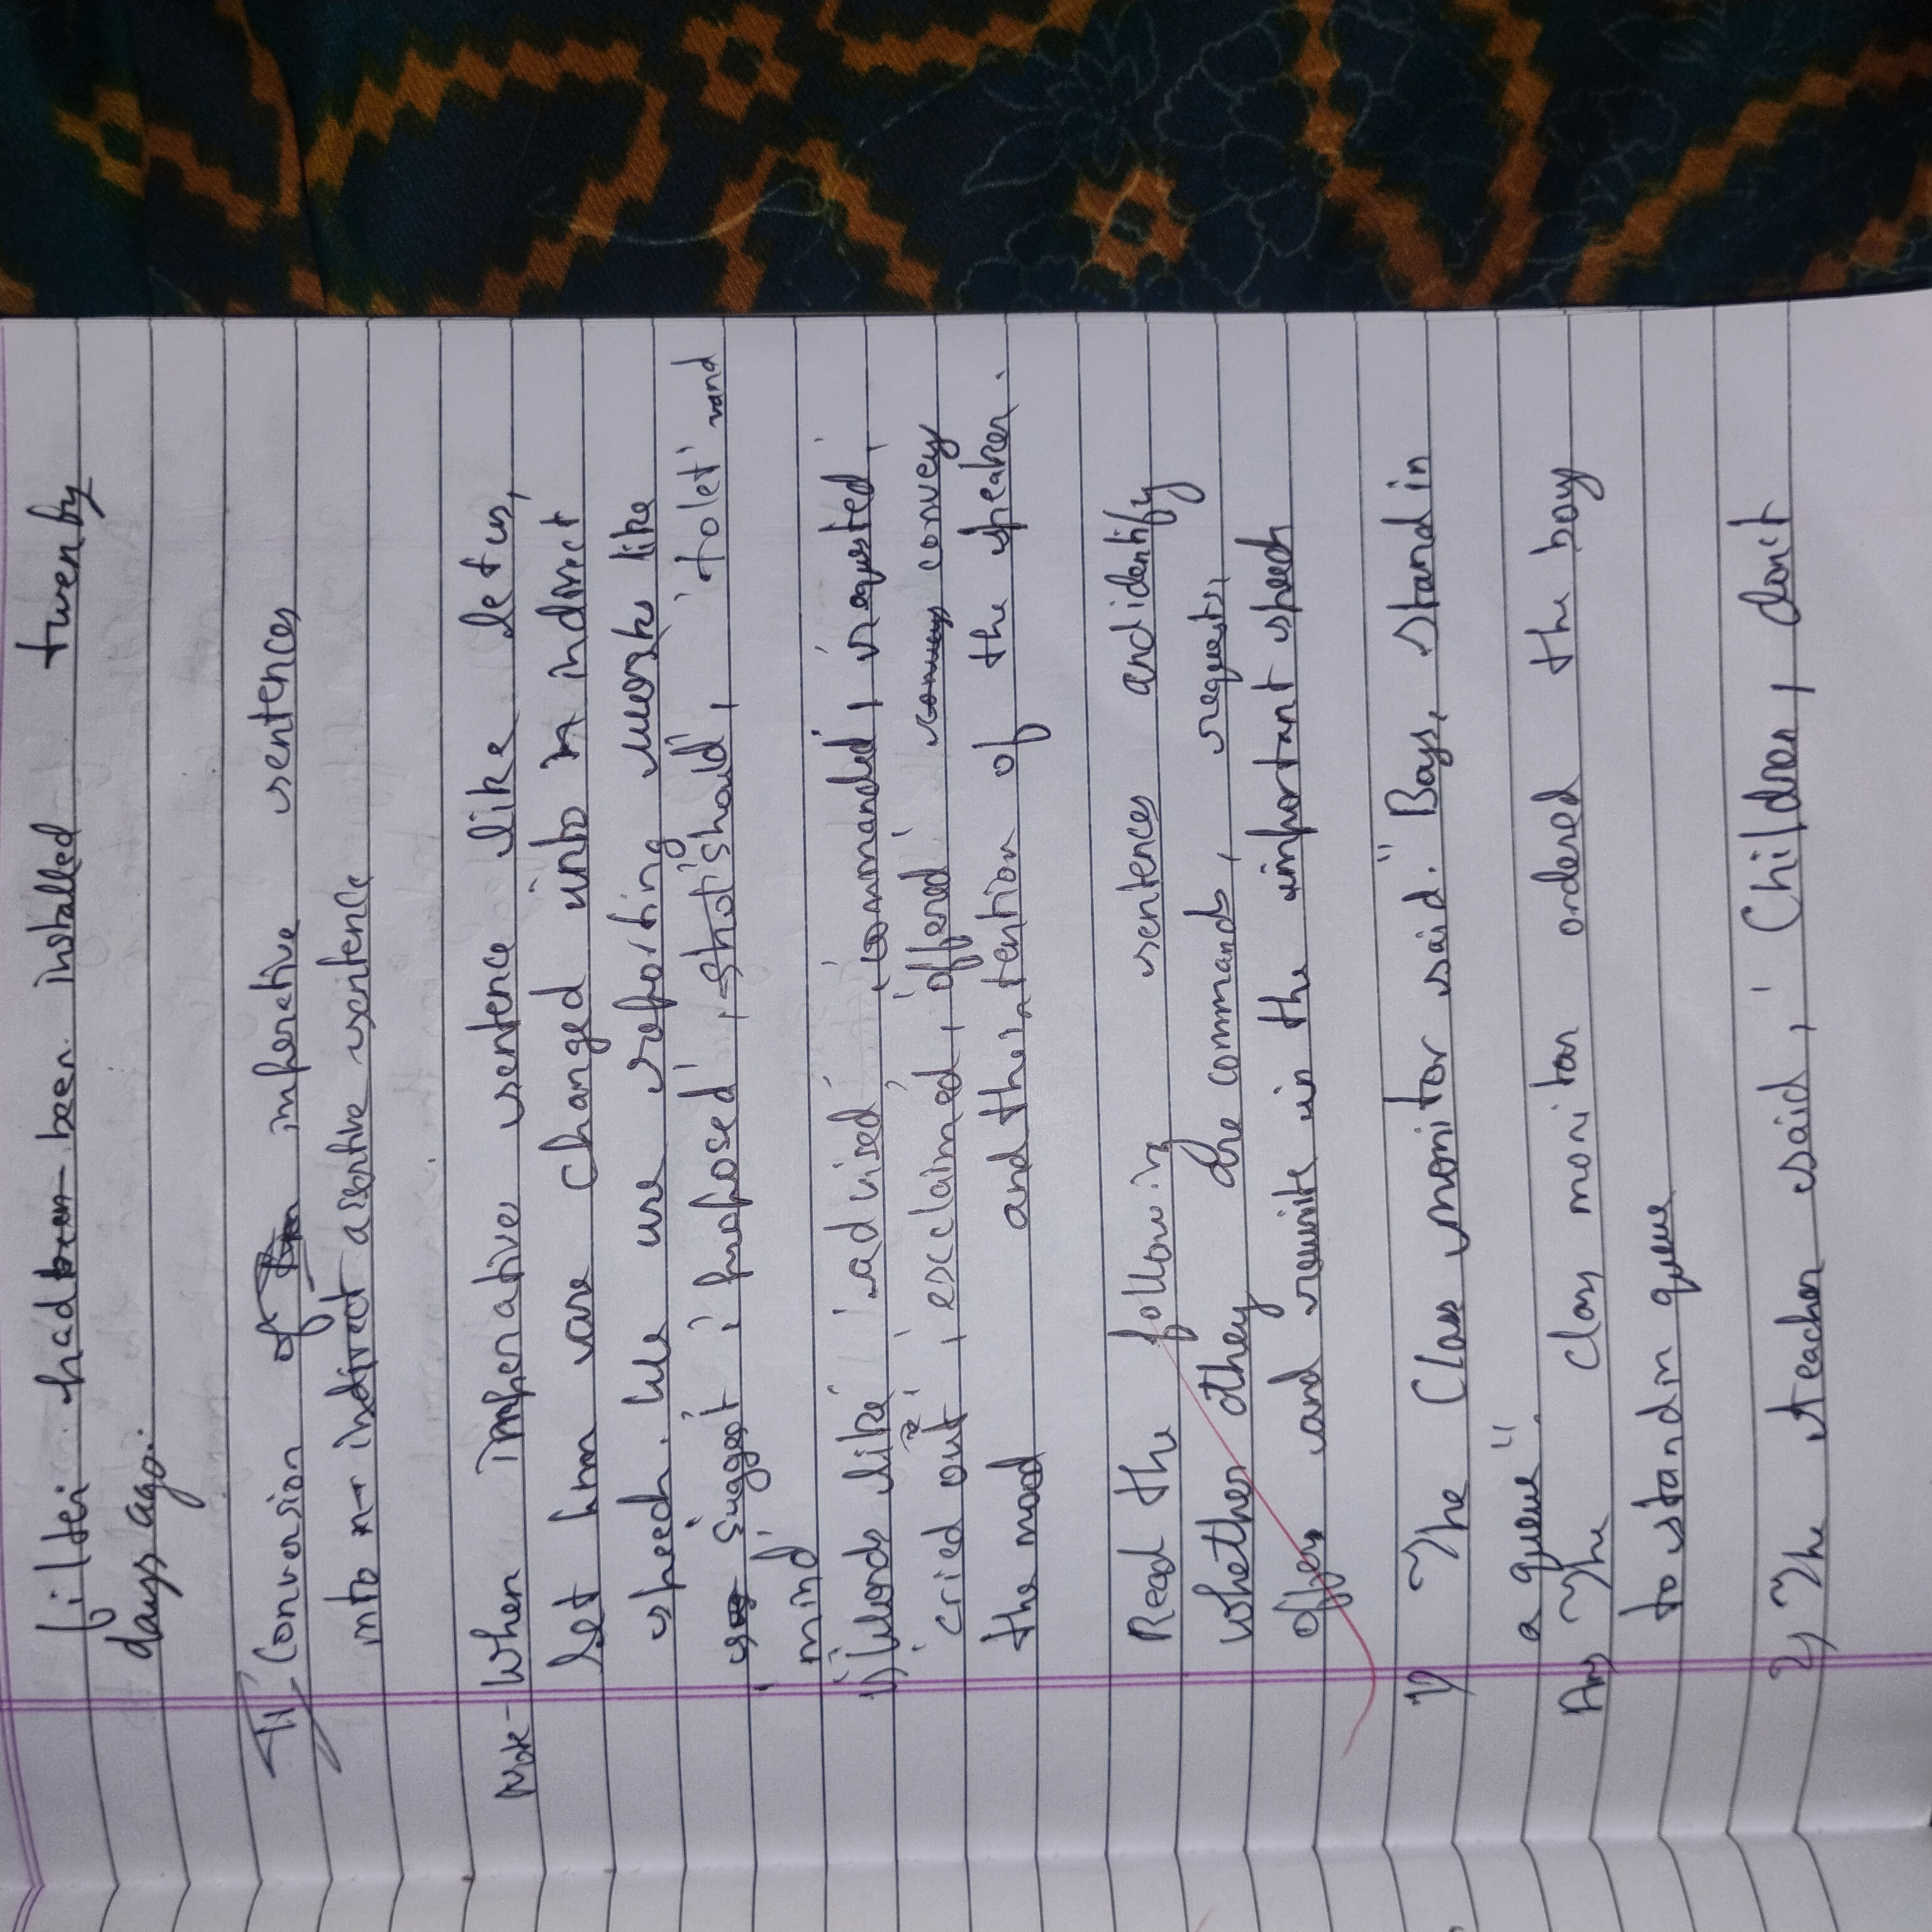 filter had been been installed twenty
days ago.
II Conversion of imperative sentences
into indirect assertive sentence
Note - When Imperative sentence like let us,
let him are changed into indirect
speech. We use reporting works like
suggest, 'proposed', should, 'to let' and
mind
ii) Words like 'advised', 'commanded', 'requested',
'cried out', 'exclaimed', 'offered' convey convey
the mood and the intention of the speaker.
Read the following sentences and identify
whether they are commands, requests,
offers and rewrite in the important speech
1) The Class monitor said. "Boys, stand in
a queue".
Ans The class monitor ordered the boy
to stand in queue
2) The teacher said, 'Children, don't